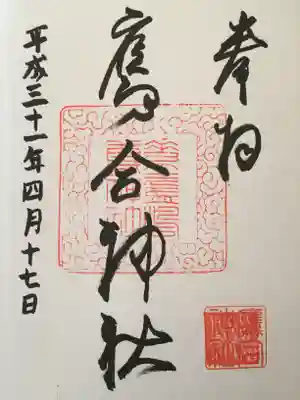 奉拝
鷹合神社
平成三十一年四月十七日